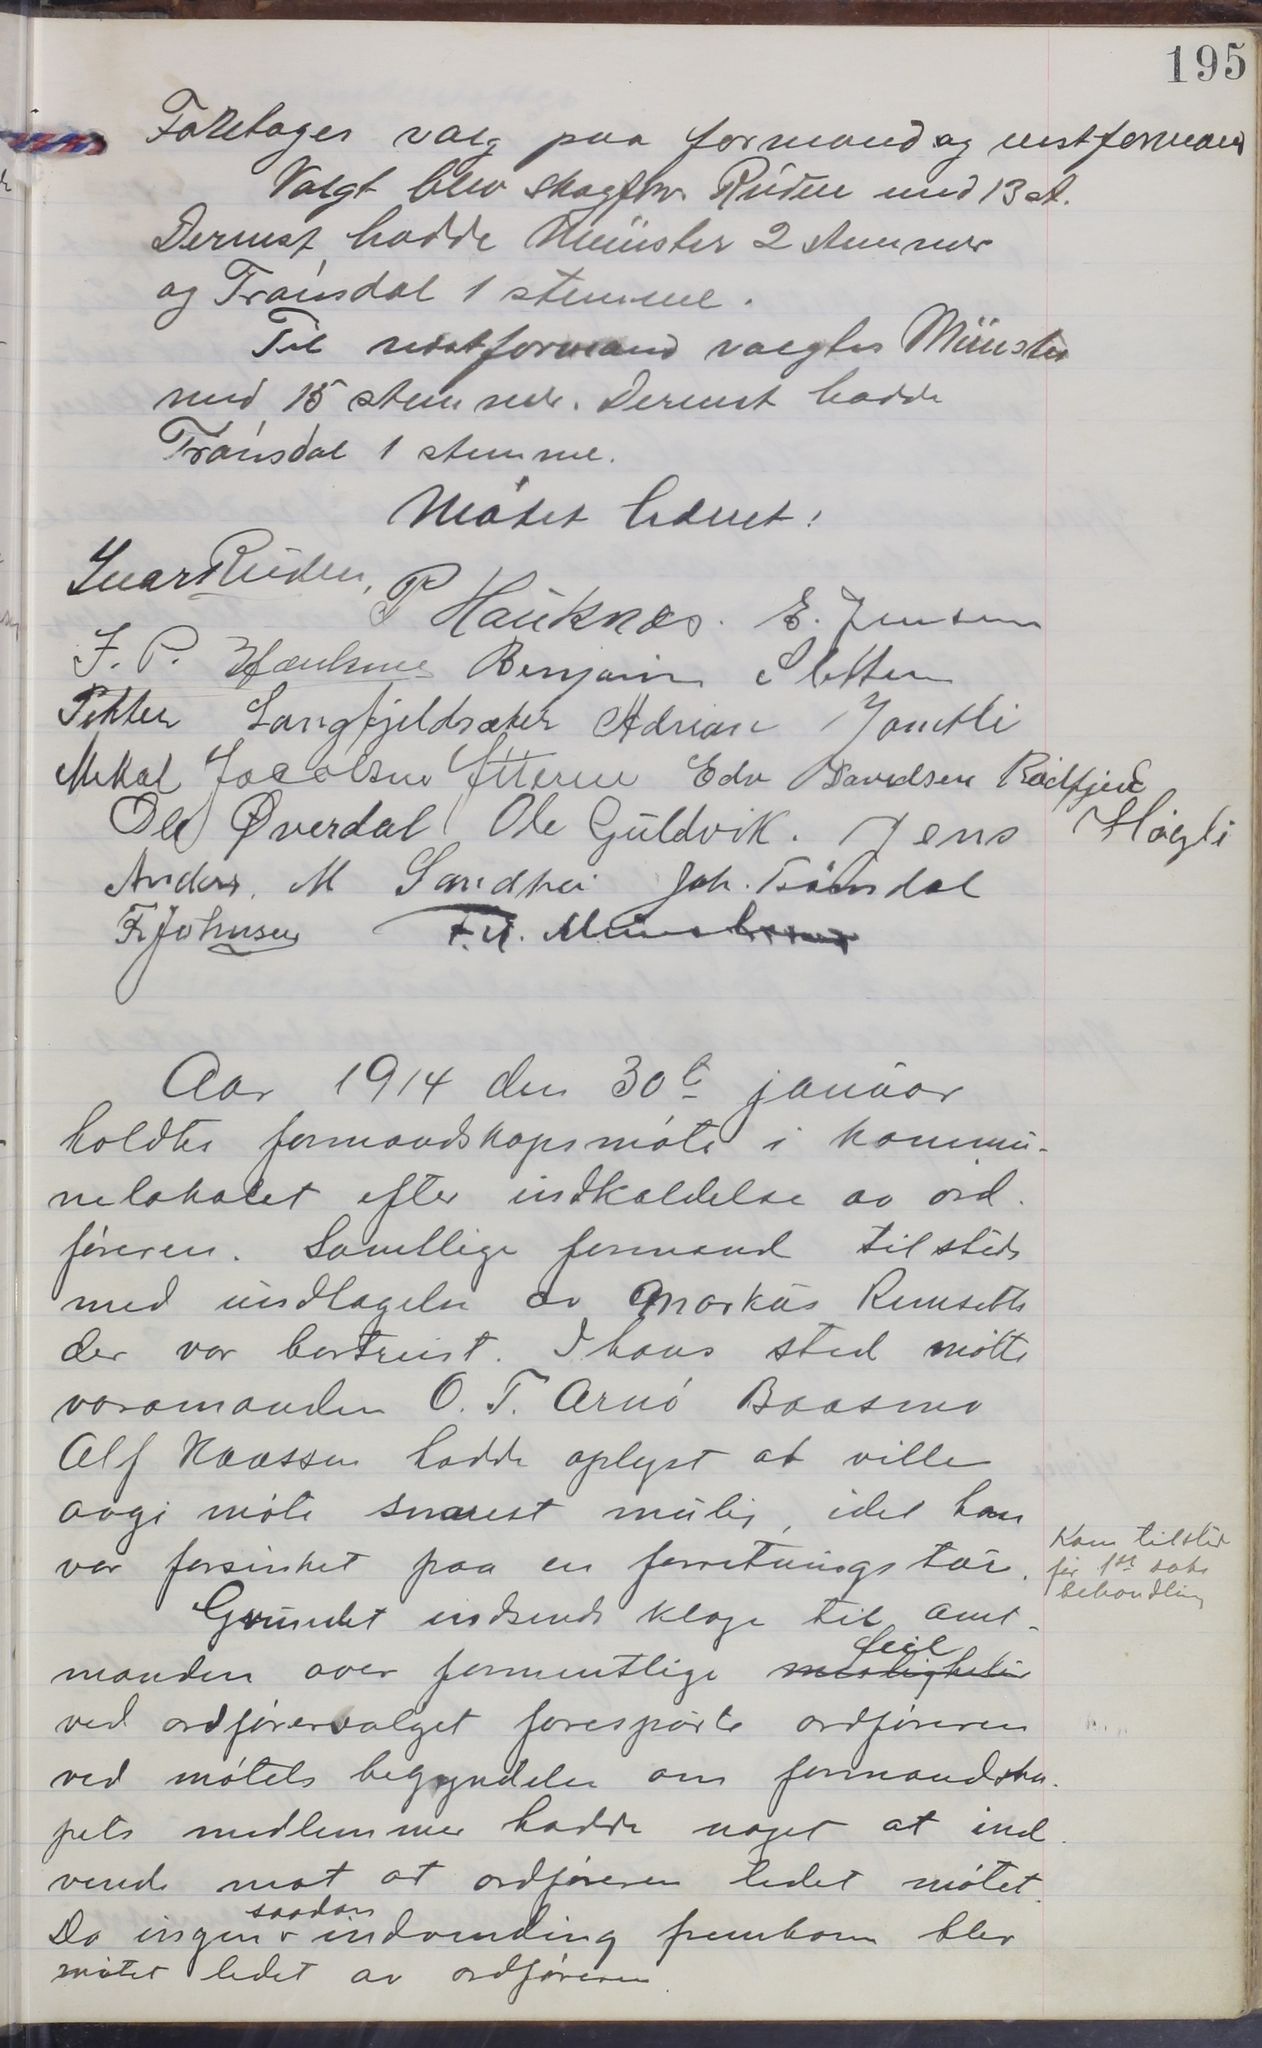 195
Foretages valg paa formand og nestformand
Valgt blev skogforv. Rúden med 13 st.
Dernest hadde Münster 2 stemmer
og Traúsdal 1 stemme.
Til nestformand valgtes Münster
med 15 stemmer. Dernest hadde
Traúsdal 1 stemme.
Mötet hævet!
Ivar Rúden, P Haúknæs. E. Jensen
J. P. Benjamin Sletten
Petter Langfjeldsæter Adrian Jamtli
Mikal Jacobsen Ytteren Edv Davidsen Rödfjeld
Ole Øverdal Ole Gúldvik. Jens Høgli
Anders. M Sandhei Joh. Traúsdal
Fr Johnsen F. U. Münster
Aar 1914 den 30te janúar
holdtes formandskapsmöte i kommú-
nelokalet efter indkaldelse av ord-
föreren. Samtlige formænd tilstede
med úndtagelse av Markús Rem
der var bortreist. I hans sted mötte
varamanden O. T. Arnö Baasmo
Alf Naassen hadde oplyst at ville
avgi möte snarest múlig, idet han
var forsinket paa en forretningstúr.
Kom tilstede
før 1ste saks
behandling
Grúndet indsendt klage til amt-
manden over formentlige misligheter feil
ved ordförervalget forespúrte ordföreren
ved mötets begyndelse om formandska-
pets medlemmer hadde noget at ind-
vende mot at ordföreren ledet mötet.
Da ingen saadan indvending fremkom blev
mötet ledet av ordföreren.